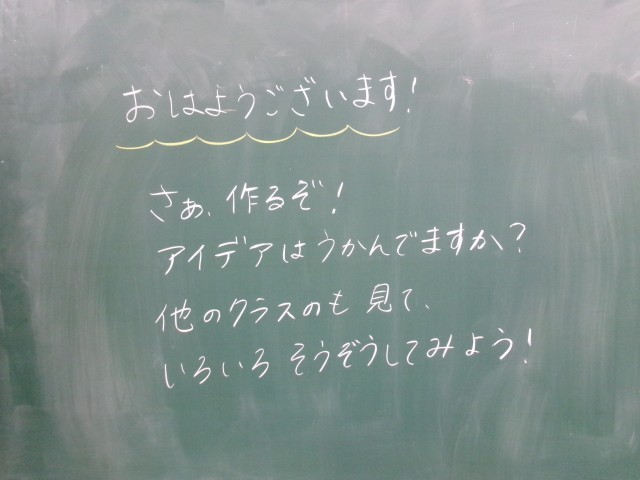 おはようございます!
さぁ、作るぞ!
アイデアはうかんでますか?
他のクラスのも見て、
いろいろそうぞうしてみよう!